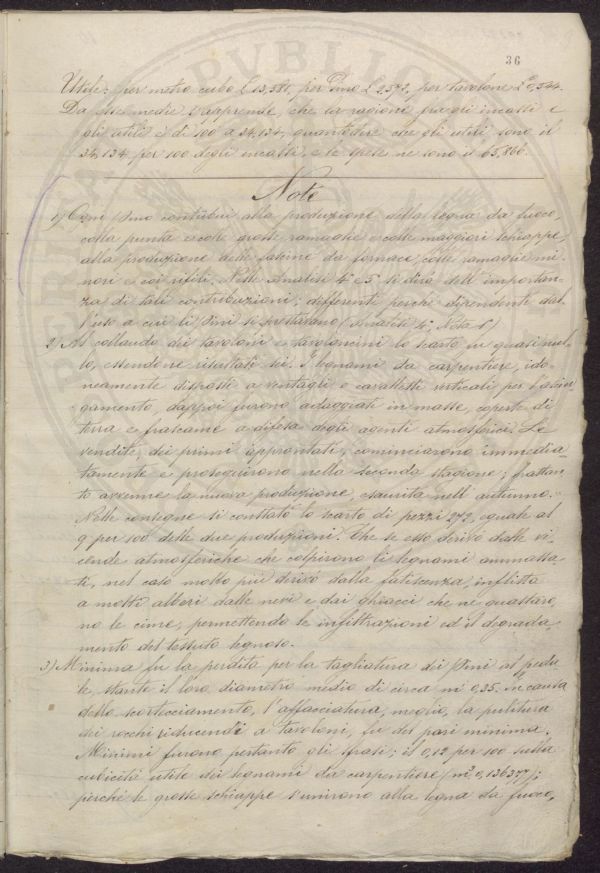 36
Utile: per metro cubo £ 13,581, per Pino £ 2,572, per tavolone £ 0,544.
Da esse medie s'apprende, che la ragione fra gli incassi e
gli utili è di 100 a 34,134, quant'dire che gli utili sono il
34,134 per 100 degli incassi, e le spese ne sono il 65,866.
Note
1) Ogni Pino contribuì alla produzione della legna da fuoco,
colla punta e colle grosse ramaglie e colle maggiori schiappe,
alla produzione delle fascine da fornace, colle ramaglie mi-
nori e coi rifili. Nelle Analisi 4ª e 5ª si dirà dell'importan-
za di tali contribuzioni; differenti perchè dipendente dal-
l'uso a cui li Pini si prestarano (Analisi 4ª, Nota 6ª)
2) Al collaudo dei tavoloni e tavoloncini lo scarto fu quasi nul-
lo, essendone risultati sei. I legnami da carpentiere, ido-
neamente disposti a ventagli e cavalletti verticali per l'asciu-
gamento, dappoi furono adaggiati in masse, coperte di
terra e frascame a difesa degli agenti atmosferici. Le
vendite dei primi approntati, cominciarono immedia-
tamente e proseguirono nella seconda stagione; frattan-
to avvenne la nuova produzione, esaurita nell'autunno.
Nelle consegne si constatò lo scarto di pezzi 272, eguale al
9 per 100 delle due produzioni. Che se esso derivò dalle vi-
cende atmosferiche che colpirono li legnami ammassa-
ti, nel caso molto più derivò dalla fatiscenza, inflitta
a molti alberi dalle nevi e dai ghiacci che ne guastaro-
no le cime, permettendo le infiltrazioni ed il degrada-
mento del tessuto legnoso.
3) Minima fu la perdita per la tagliatura dei Pini al peda-
le, stante il loro diametro medio di circa m. 0,35. In causa
dello scortecciamento, l'affacciatura, meglio, la pulitura
dei rocchi riducendi a tavoloni, fu del pari minima.
Minimi furono pertanto gli sfrasi; il 0,12 per 100 sulla
cubicità utile dei legnami da carpentiere (m³ 0,136377);
perchè le grosse schiappe s'unirono alla legna da fuoco,